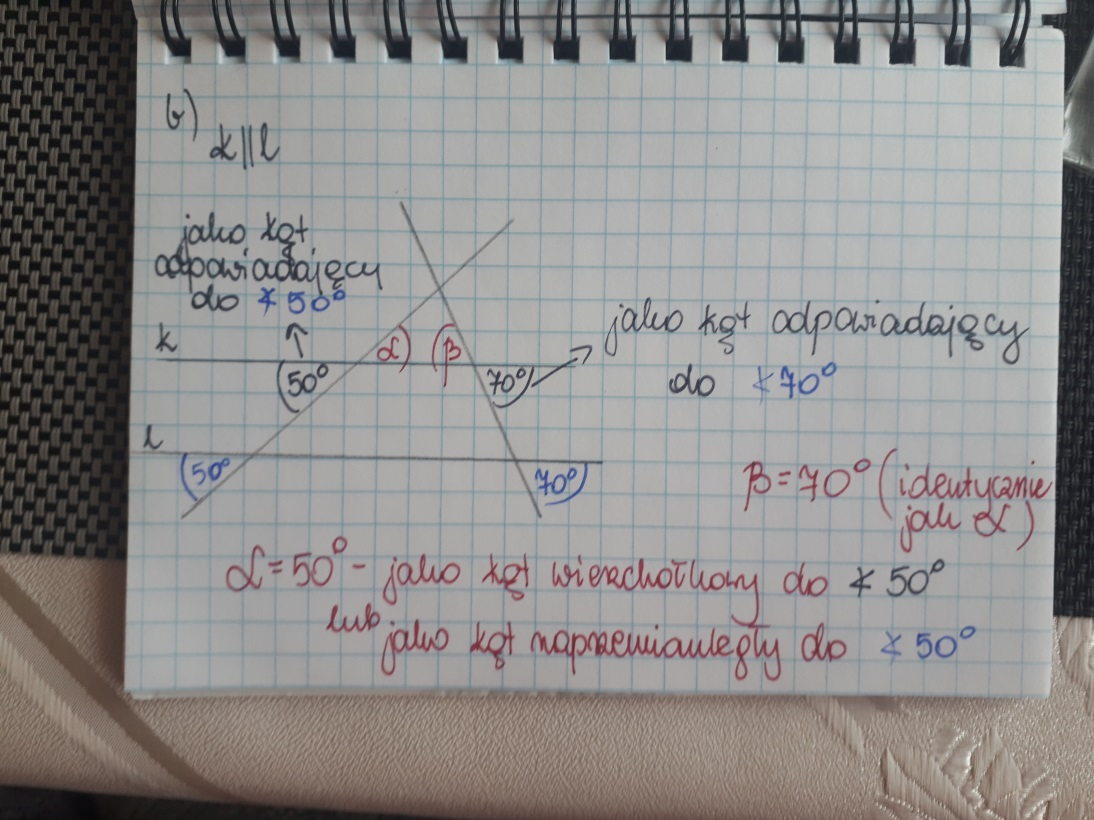 b)
k||l
jako kąt
odpowiadający
do ∢50°
k
α
β
50°
70°
jako kąt odpowiadający
do ∢70°
l
50°
70°
β=70° (identycznie
jak α)
α=50° - jako kąt wierzchołkowy do ∢50°
lub
jako kąt naprzemianległy do ∢50°